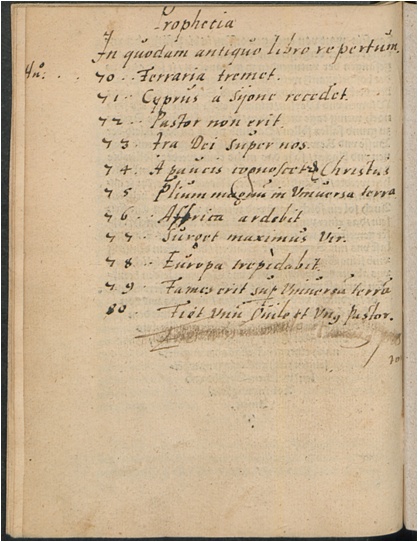 Prophecia
In quodam antiquo libro repertum.
An: . . 70 . . Ferraria tremet.
71 . . Cyprus a Syone recedet.
72 . . Pastor non erit
73 . Ira Dei super nos.
74 . A paucis cognoscetr Christus
75 . Plium magnũ in Vniuersa terra
76 . Affrica ardebit
77 . . Surget maximus Vir.
78 . Europa trepidabit.
79 . Fames erit sup Vniuersã terrã
80 . . Fiet Vnũ Ouile et Vnꝯ pastor.